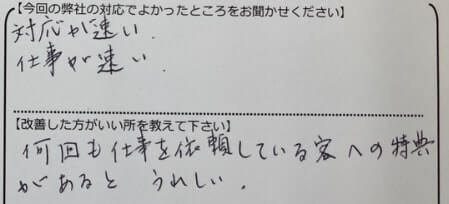 【今回の弊社の対応でよかったところをお聞かせください】
対応が速い.
仕事が速い.
【改善した方がいい所を教えて下さい】
何回も仕事を依頼している客への特典
があると うれしい.